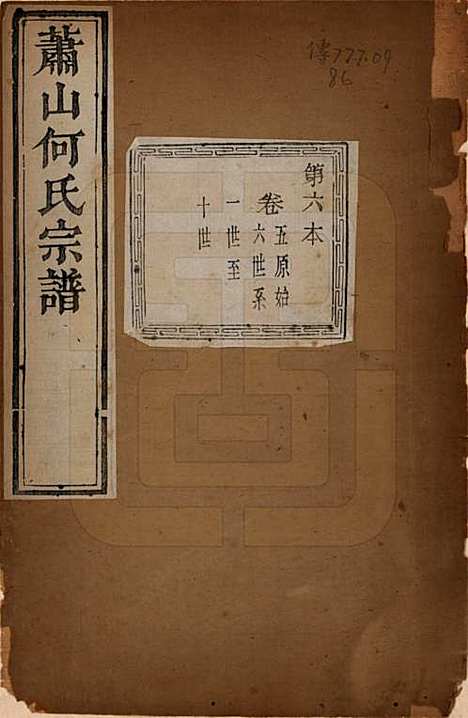 蕭山何氏宗譜
第六本
卷
五原始
六世系
一世至
十世
傳77.7.09
86